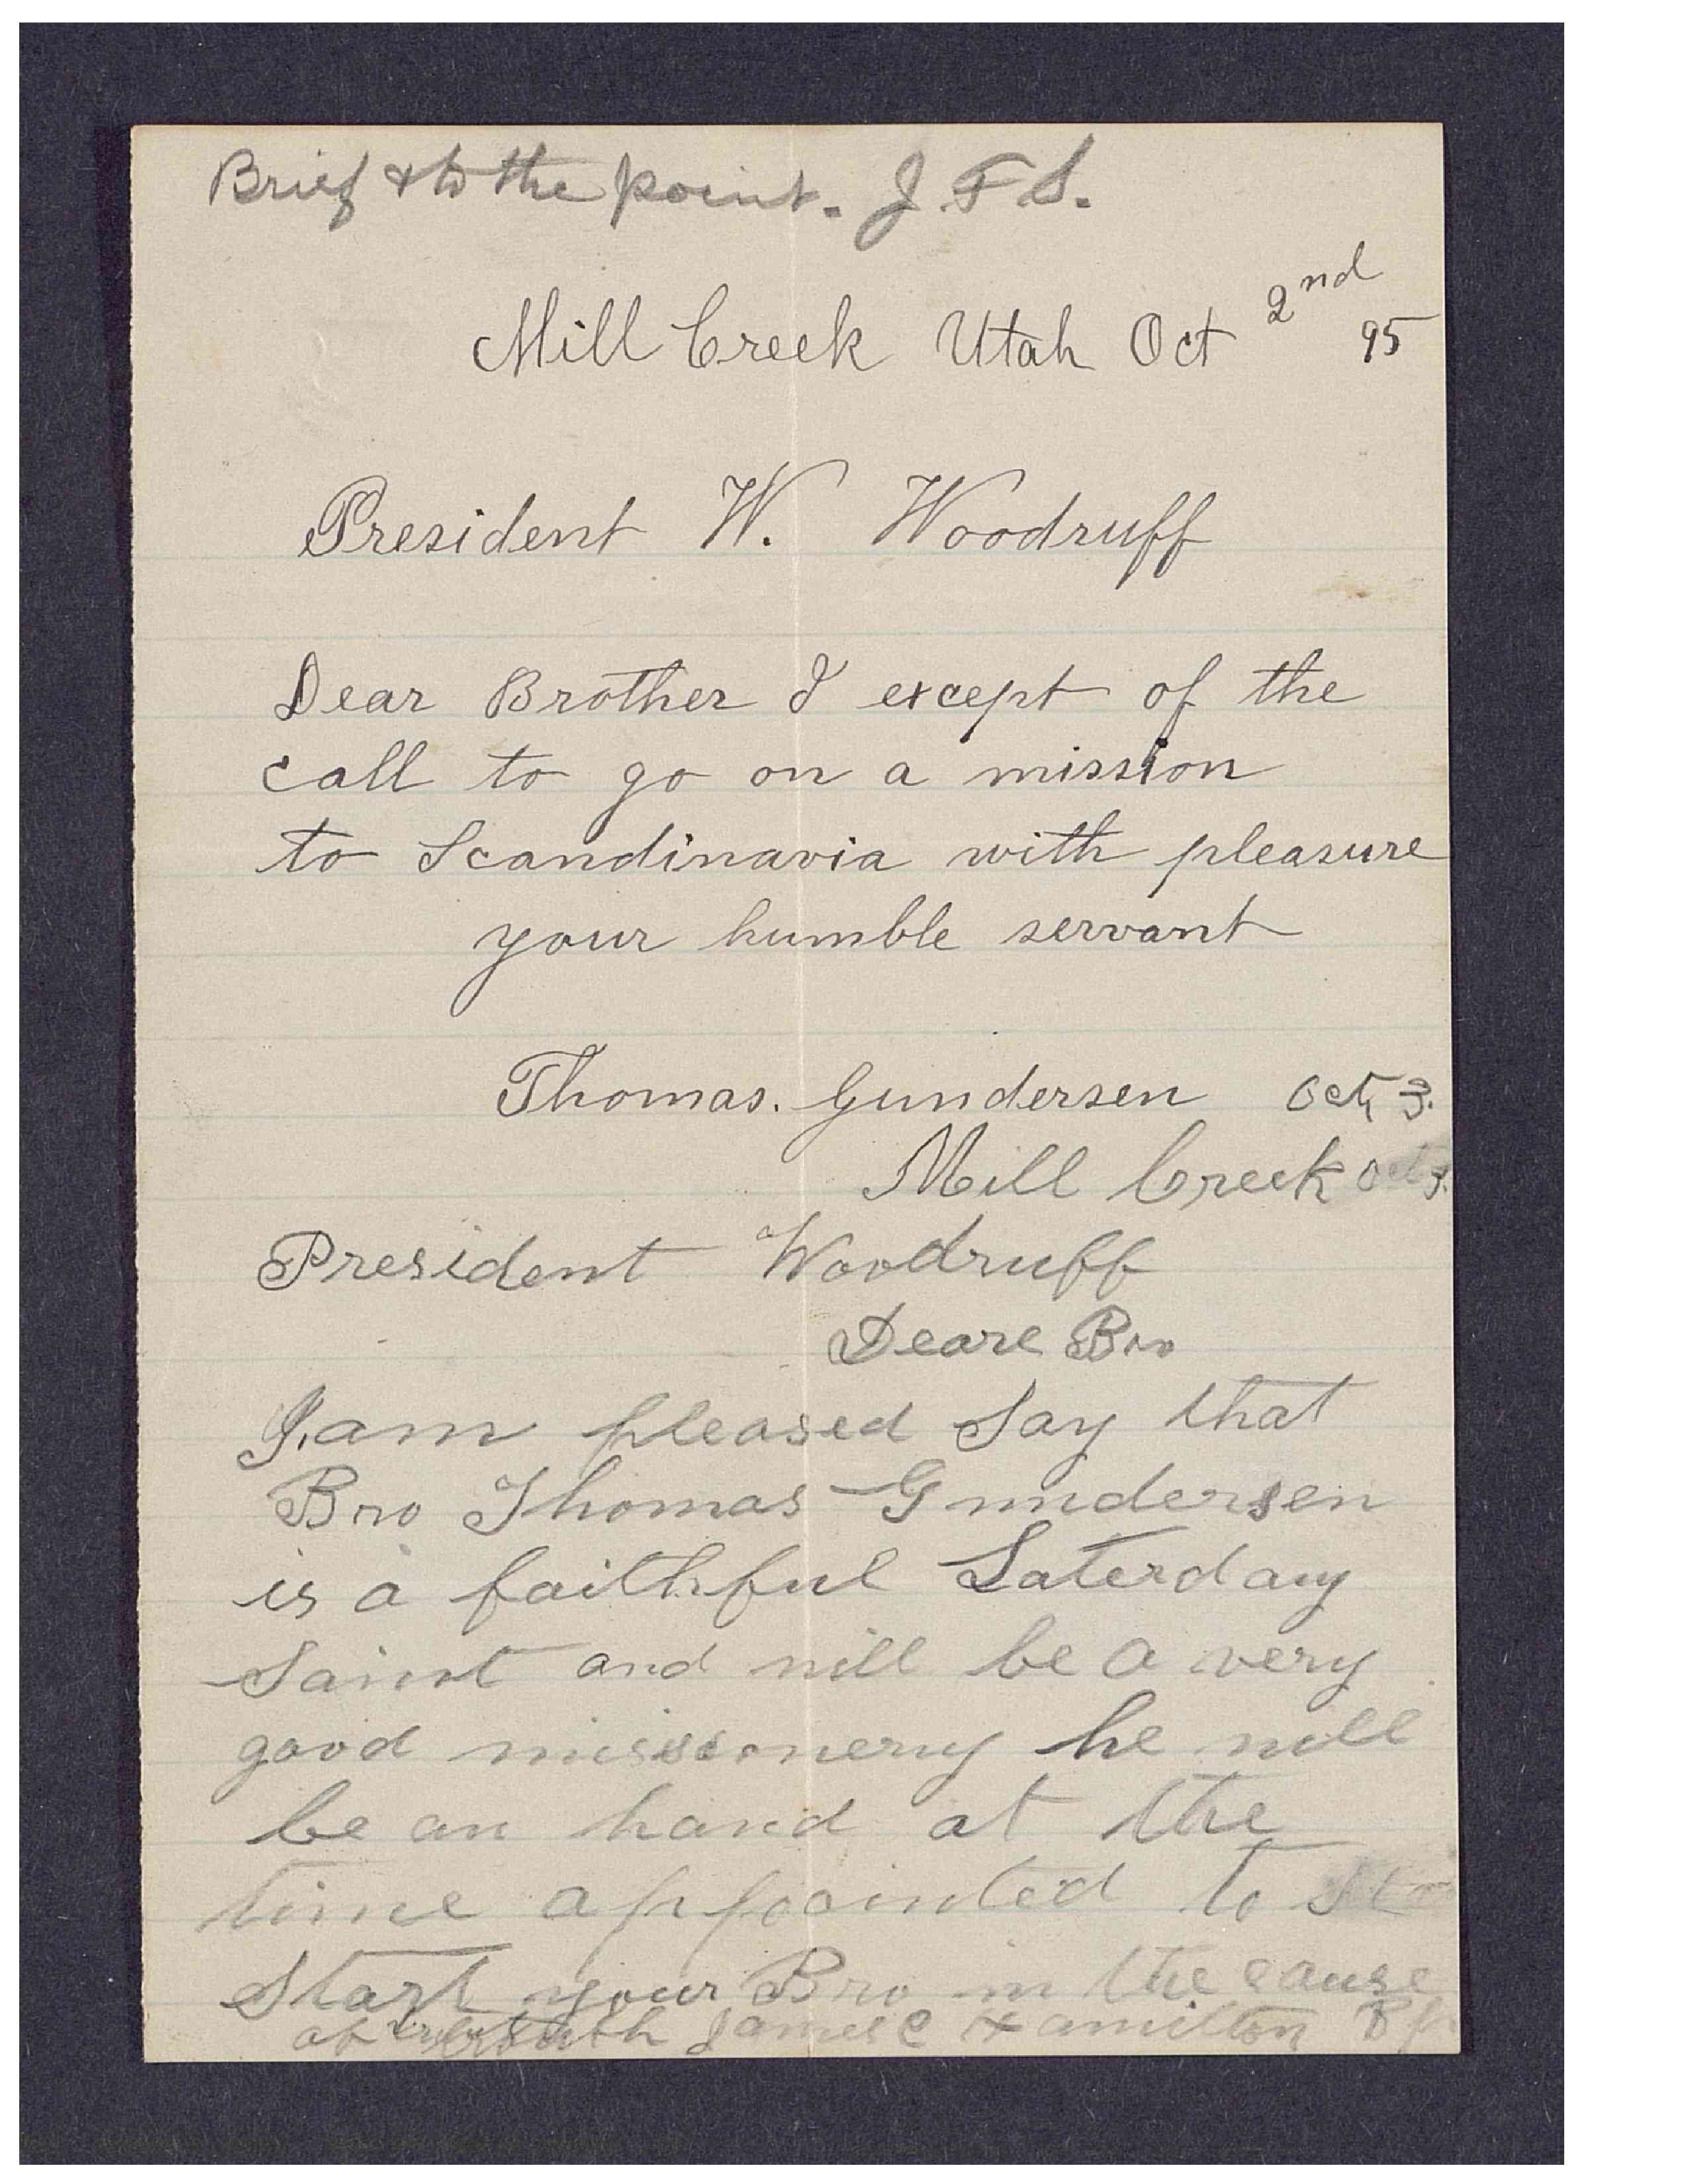 Brief & to the point. J F S.
Mill Creek Utah Oct 2nd 95
President W. Woodruff
Dear Brother I except of the
call to go on a mission
to Scandinavia with pleasure
your humble servant
Thomas. Gundersen Oct, 3.
Mill Creek Oct 3.
President Woodruff
Deare Bro
I, am pleased Say that
Bro Thomas Gundersen
is a faithful Laterday
Saint and will be a very
good missionery he will
be on hand at the
time appointed to
Start your Bro in the cause
of truth James C Hamilton Bp